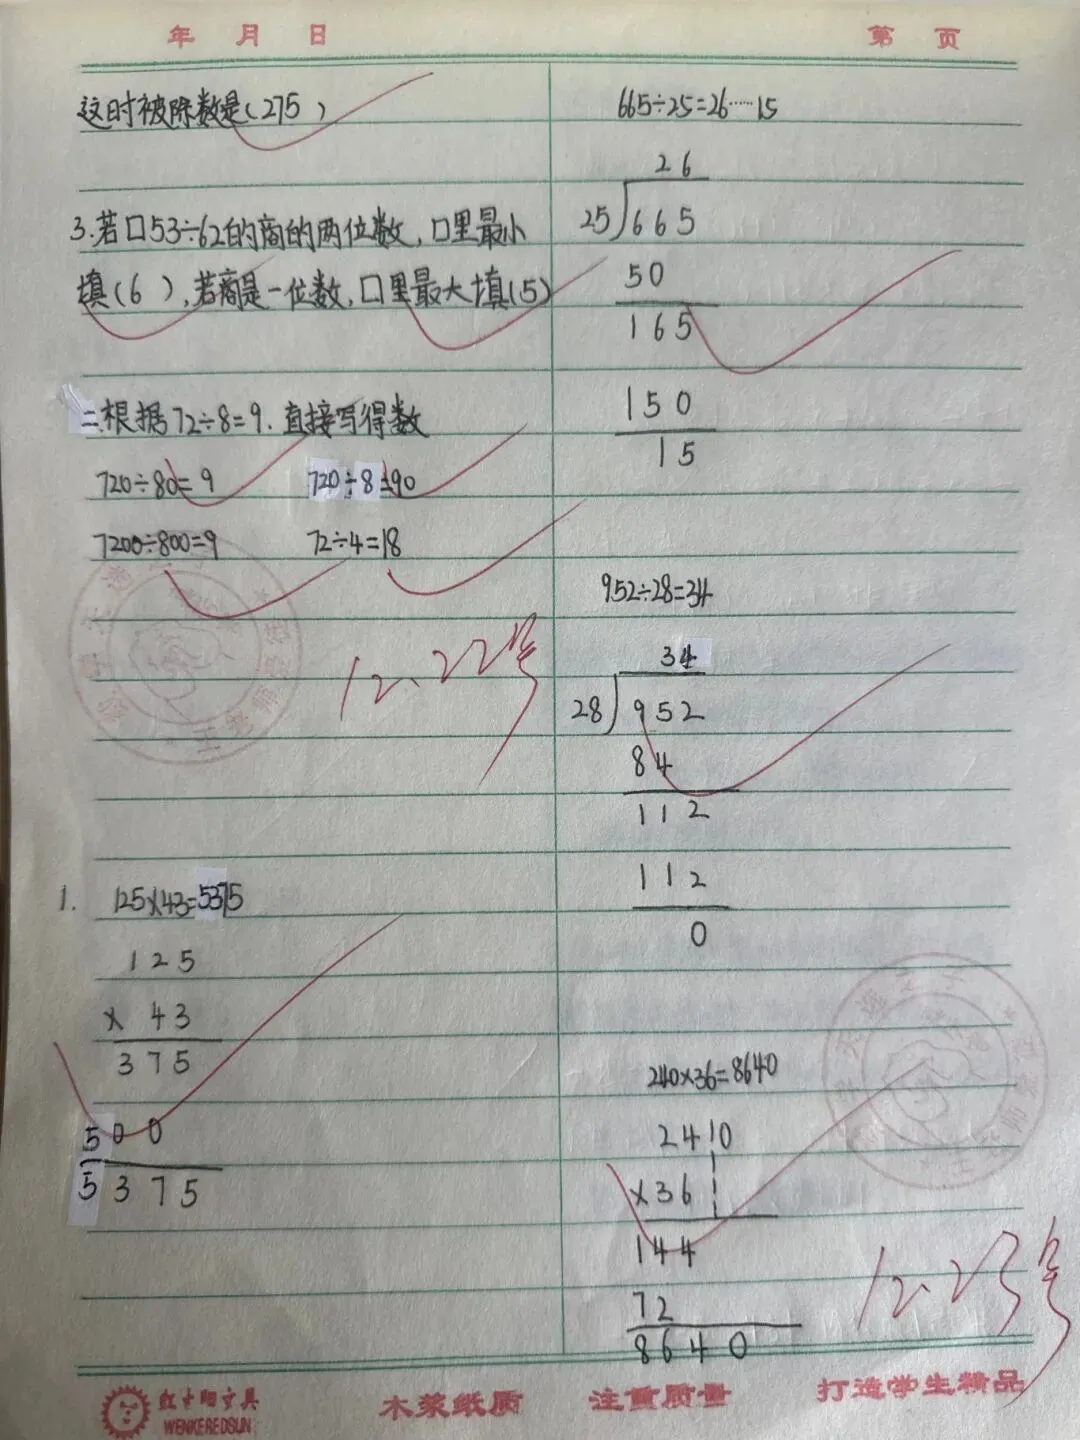 年 月 日
第 页
这时被除数是(275 )
3.若口53÷62的商的两位数,口里最小
填(6 ),若商是一位数,口里最大填(5)
二.根据72÷8=9.直接写得数
720÷80=9 720÷8=90
7200÷800=9 72÷4=18
12.22号
1. 125×43=5375
125
× 43
375
500
5375
665÷25=26……15
26
25 665
50
165
150
15
952÷28=34
34
28 952
84
112
112
0
240×36=8640
240
×36
144
72
8640
12.23号
WENKEREDSUN
木浆纸质 注重质量 打造学生精品